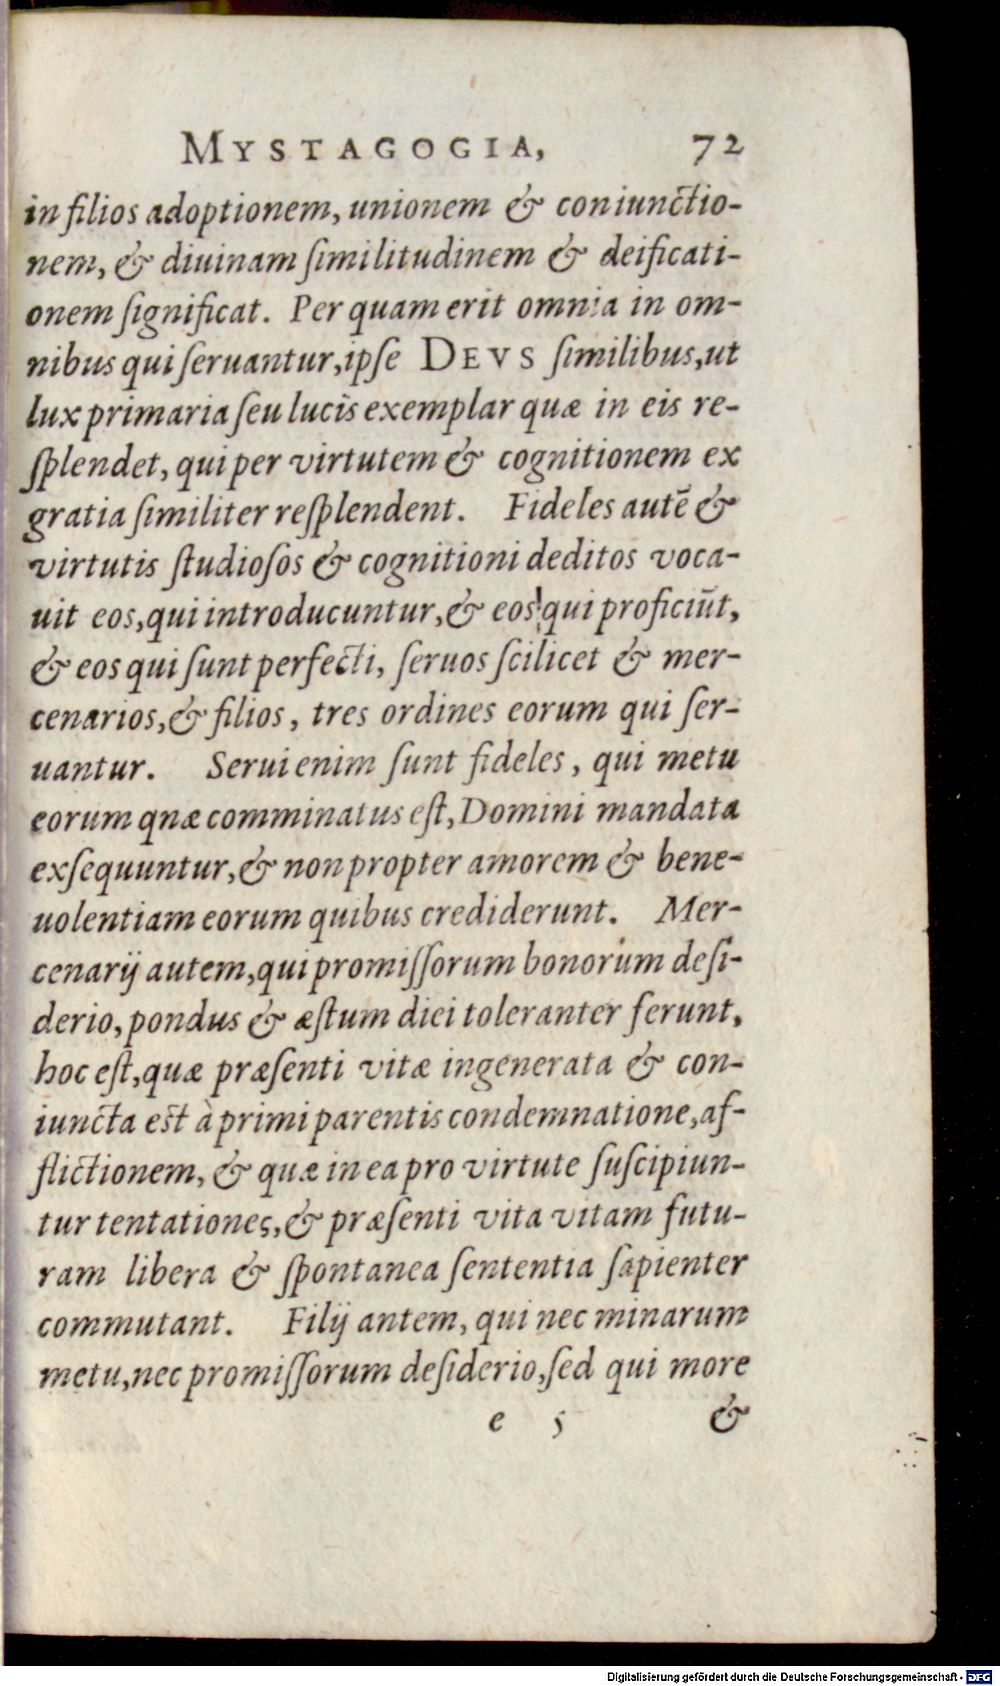 MYSTAGOGIA, 72
in filios adoptionem, unionem & coniunctio-
nem, & diuinam ſimilitudinem & deificati-
onem ſignificat. Per quam erit omnia in om-
nibus qui ſeruantur, ipſe DEVS ſimilibus, ut
lux primaria ſeu lucis exemplar quæ in eis re-
ſplendet, qui per virtutem & cognitionem ex
gratia ſimiliter reſplendent. Fideles autẽ &
virtutis ſtudioſos & cognitioni deditos voca-
uit eos, qui introducuntur, & eos qui proficiũt,
& eos qui ſunt perfecti, ſeruos ſcilicet & mer-
cenarios, & filios, tres ordines eorum qui ſer-
uantur. Serui enim ſunt fideles, qui metu
eorum qnæ comminatus eſt, Domini mandata
exſequuntur, & non propter amorem & bene-
uolentiam eorum quibus crediderunt. Mer-
cenarij autem, qui promiſſorum bonorum deſi-
derio, pondus & æſtum diei toleranter ferunt,
hoc eſt, quæ præſenti vitæ ingenerata & con-
iuncta est à primi parentis condemnatione, af-
flictionem, & quæ in ea pro virtute ſuſcipiun-
tur tentationes, & præſenti vita vitam futu-
ram libera & ſpontanea ſententia ſapienter
commutant. Filij antem, qui nec minarum
metu, nec promiſſorum deſiderio, ſed qui more
e 5 &
Digitalisierung gefördert durch die Deutsche Forschungsgemeinschaft - DFG